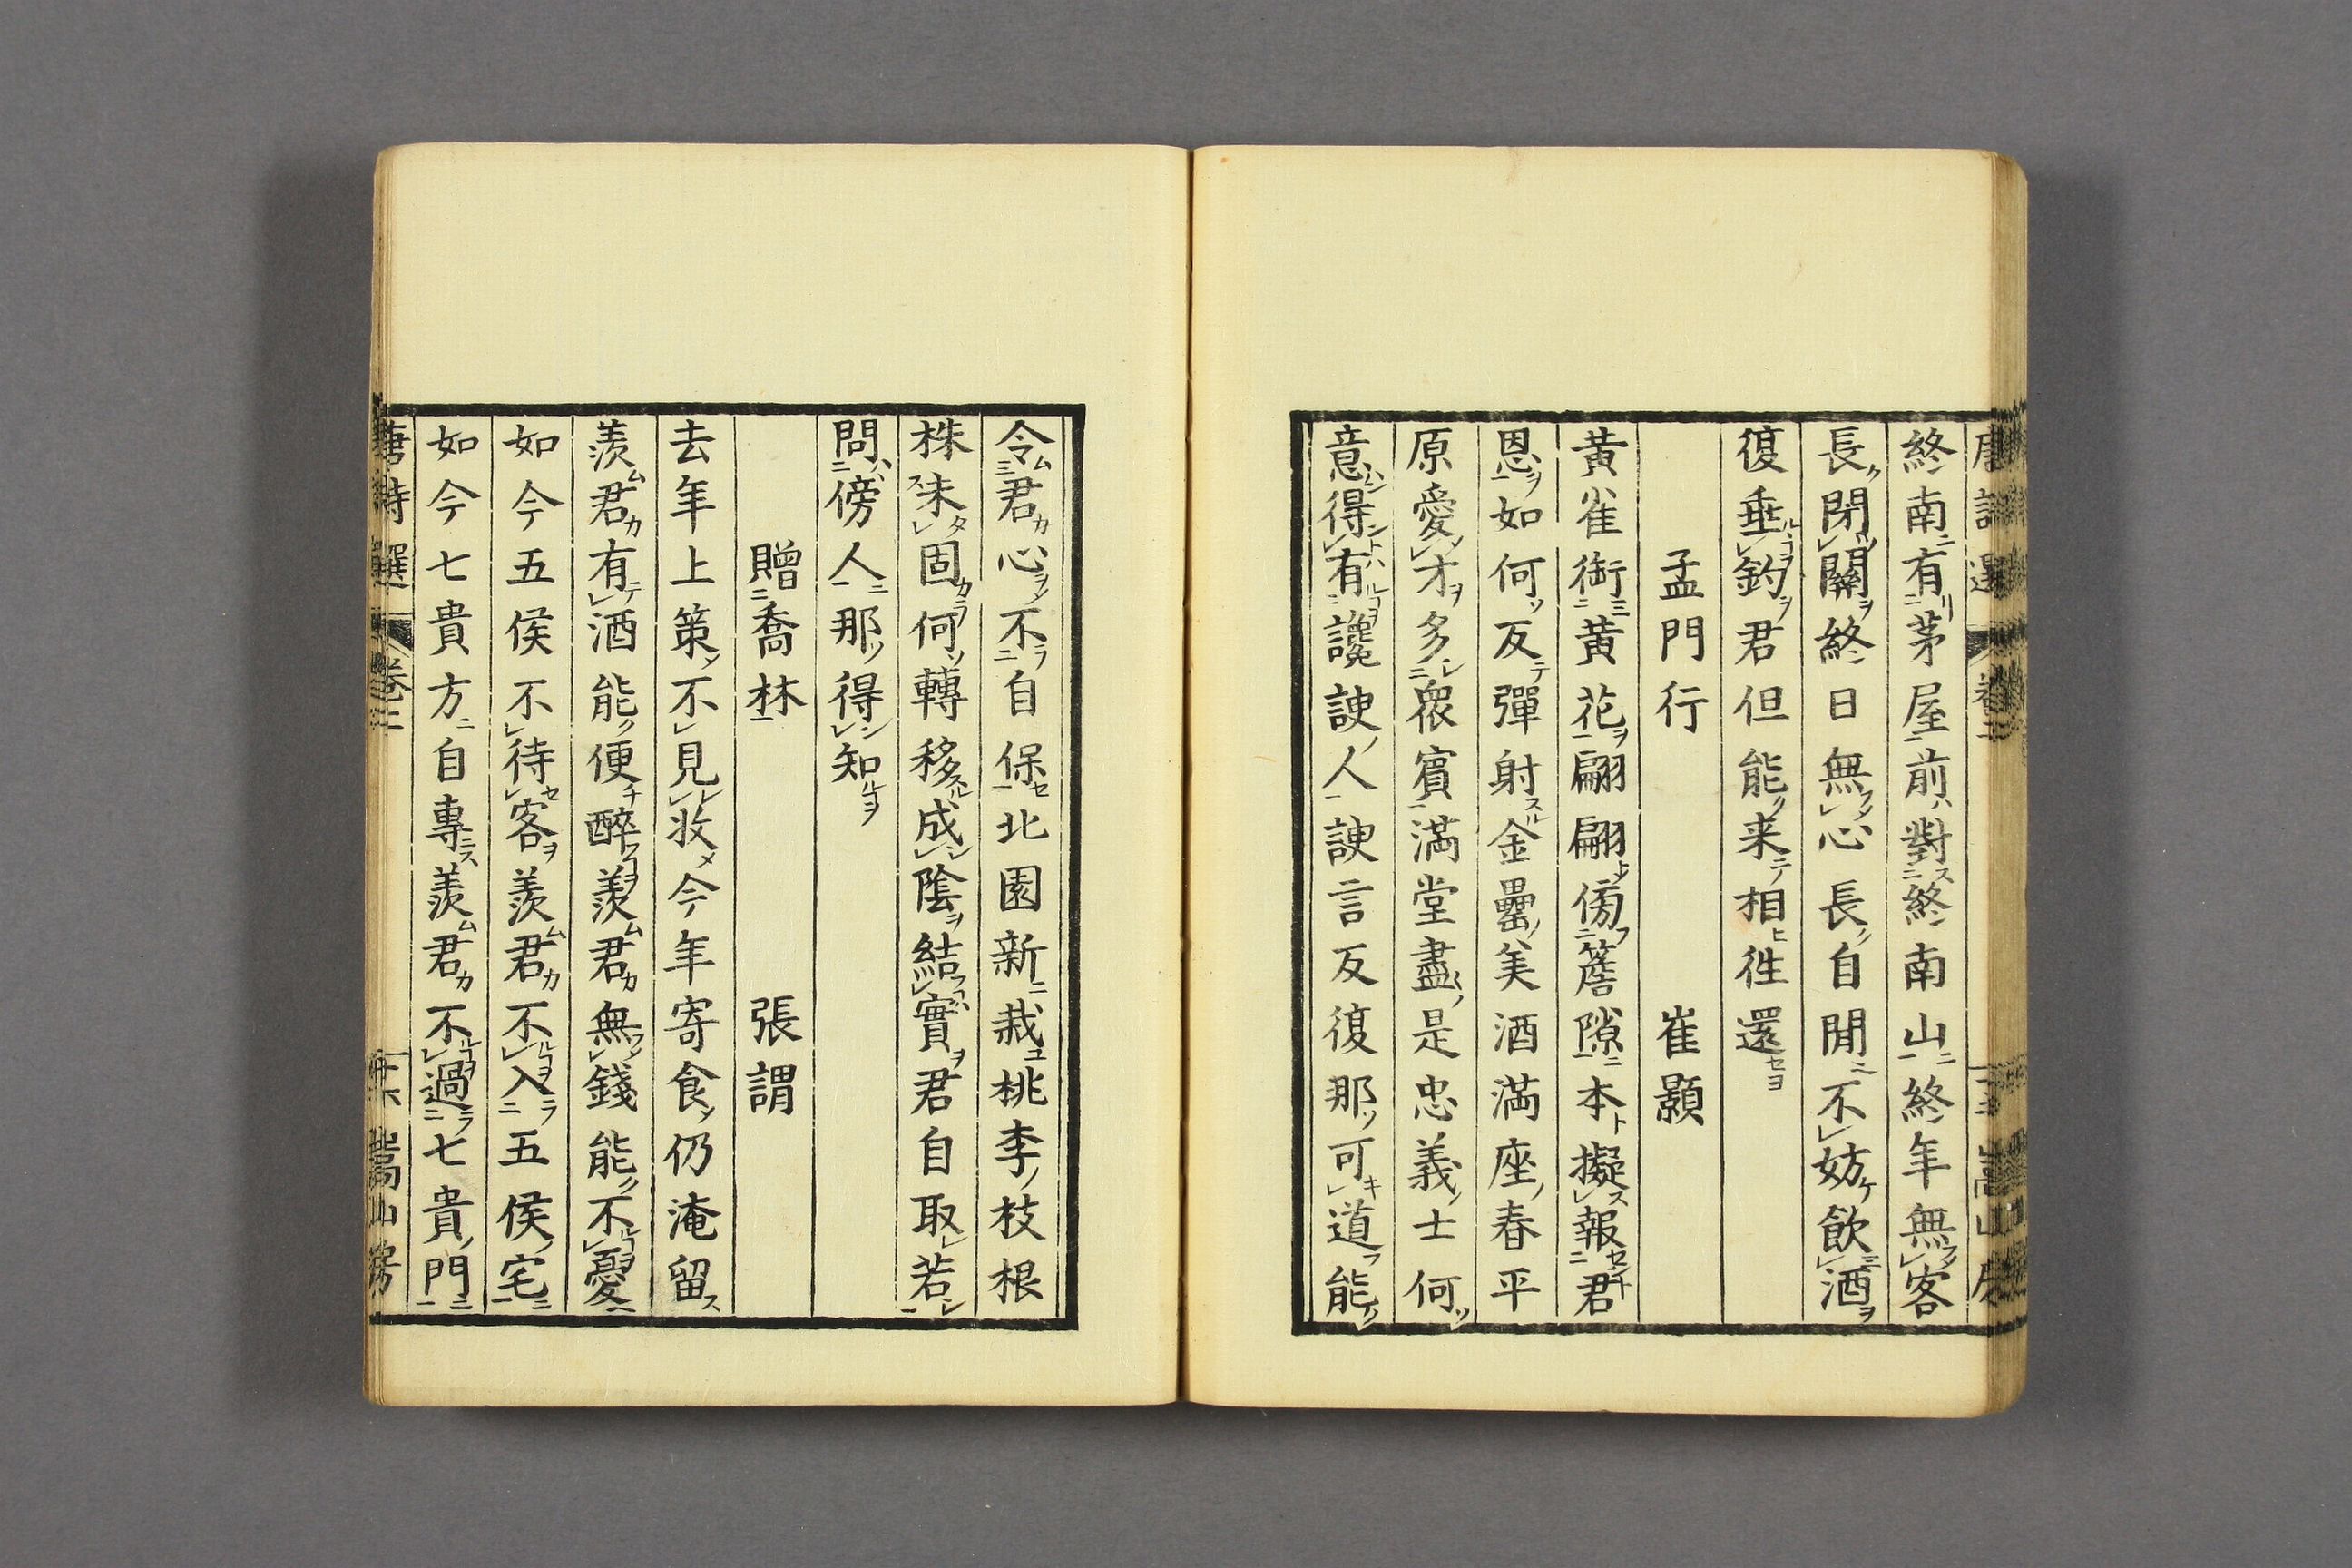 終南有茅屋前對終南山終年無客
長閉關終日無心長自閒不妨飲酒
復垂釣君但能来相往還
孟門行 崔顥
黃雀銜黃花翩翩傍簷隙本擬報君
恩如何反彈射金罍美酒滿座春平
原愛才多衆賓滿堂盡是忠義士何
意得有讒諛人諛言反復那可道能
令君心不自保北園新栽桃李枝根
株未固何轉移成陰結實君自取若
問傍人那得知
贈喬林 張謂
去年上策不見收今年寄食仍淹留
羨君有酒能便醉羨君無錢能不憂
如今五侯不待客羨君不入五侯宅
如今七貴方自專羨君不過七貴門
唐詩選 卷二 嵩山房